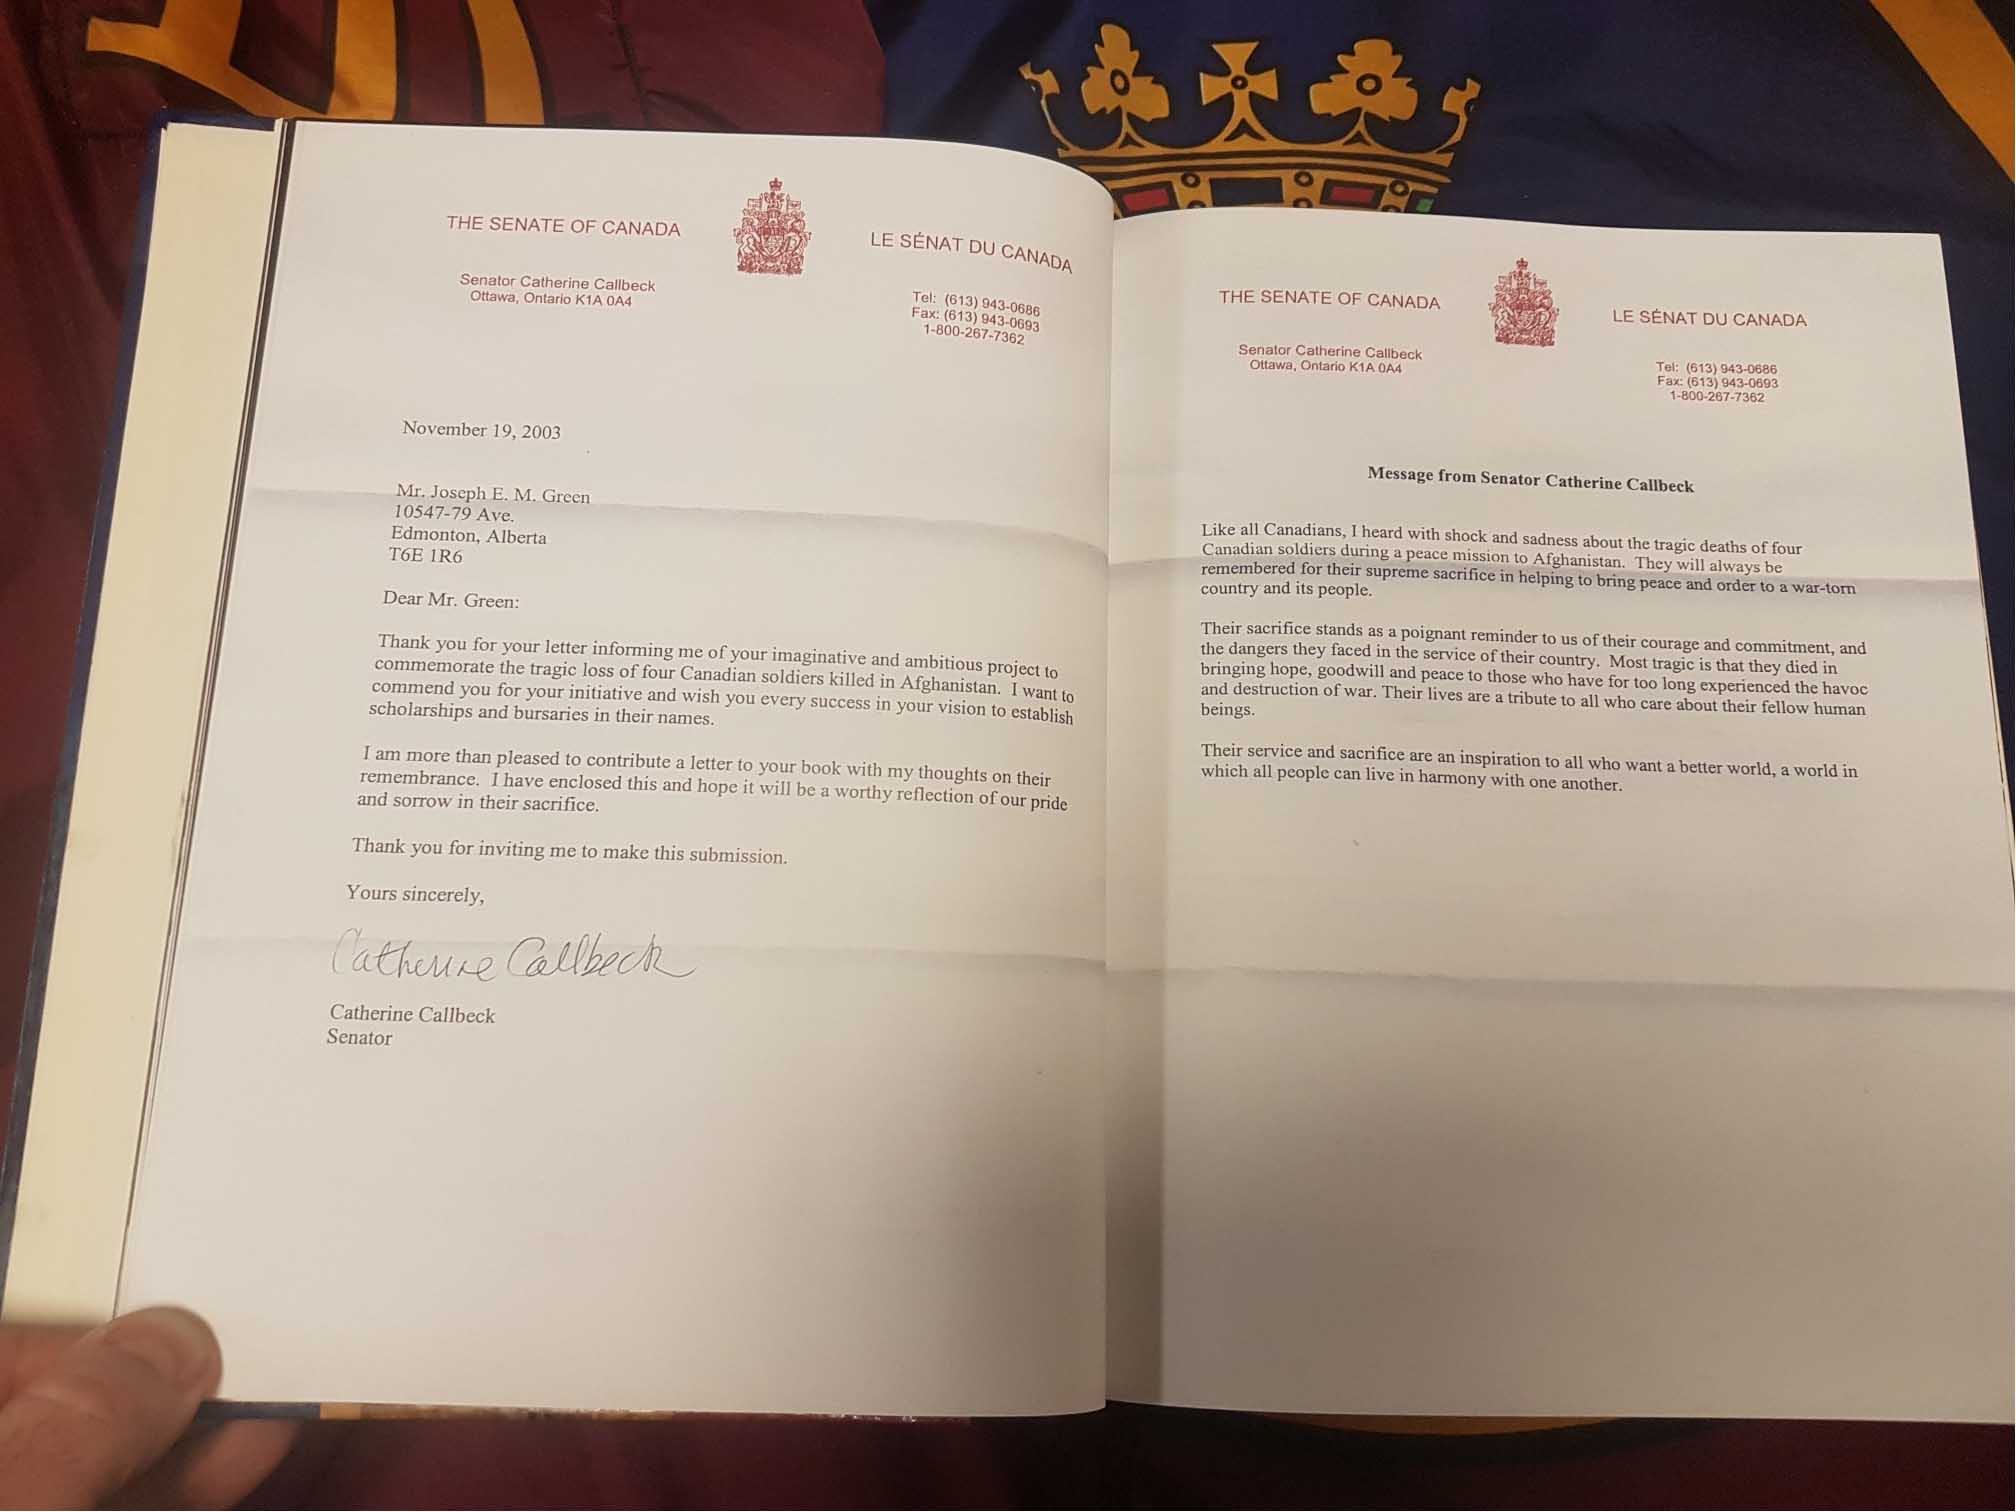 THE SENATE OF CANADA
LE SÉNAT DU CANADA
Senator Catherine Callbeck
Ottawa, Ontario K1A 0A4
Tel: (613) 943-0686
Fax: (613) 943-0693
1-800-267-7362
November 19, 2003
Mr. Joseph E. M. Green
10547-79 Ave.
Edmonton, Alberta
T6E 1R6
Dear Mr. Green:
Thank you for your letter informing me of your imaginative and ambitious project to
commemorate the tragic loss of four Canadian soldiers killed in Afghanistan. I want to
commend you for your initiative and wish you every success in your vision to establish
scholarships and bursaries in their names.
I am more than pleased to contribute a letter to your book with my thoughts on their
remembrance. I have enclosed this and hope it will be a worthy reflection of our pride
and sorrow in their sacrifice.
Thank you for inviting me to make this submission.
Yours sincerely,
Catherine Callbeck
Catherine Callbeck
Senator
THE SENATE OF CANADA
LE SÉNAT DU CANADA
Senator Catherine Callbeck
Ottawa, Ontario K1A 0A4
Tel: (613) 943-0686
Fax: (613) 943-0693
1-800-267-7362
Message from Senator Catherine Callbeck
Like all Canadians, I heard with shock and sadness about the tragic deaths of four
Canadian soldiers during a peace mission to Afghanistan. They will always be
remembered for their supreme sacrifice in helping to bring peace and order to a war-torn
country and its people.
Their sacrifice stands as a poignant reminder to us of their courage and commitment, and
the dangers they faced in the service of their country. Most tragic is that they died in
bringing hope, goodwill and peace to those who have for too long experienced the havoc
and destruction of war. Their lives are a tribute to all who care about their fellow human
beings.
Their service and sacrifice are an inspiration to all who want a better world, a world in
which all people can live in harmony with one another.